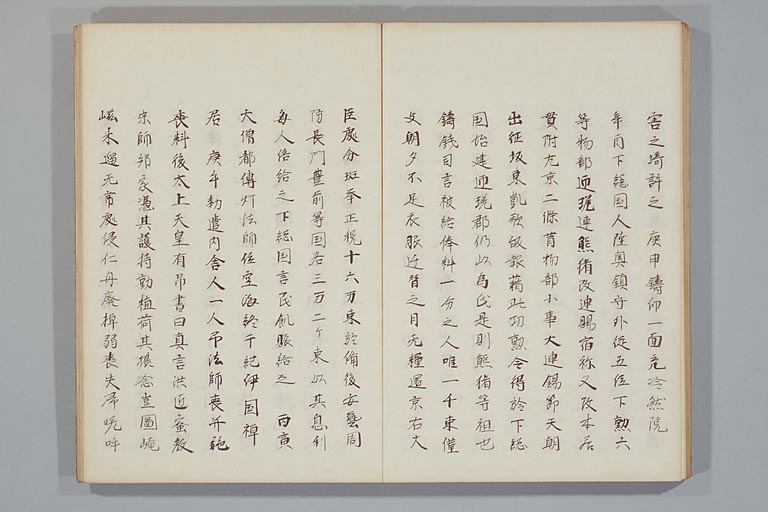 害之埼許之　庚申鑄印一面充冷然院
辛酉下総国人陸奥鎮守外従五位下勲六
等物部匝瑳連熊猪改連賜宿祢又改本居
貫附左京二條昔物部小事大連錫節天朝
出征坂東凱歌皈報藉此功勲令得於下総
国始建匝瑳郡仍以為氏是則熊猪等祖也
鑄銭司言被給俸料一分之人唯一千束僅
支朝夕不足衣服迁替之日无糧還京右大
臣處分班挙正税十六万束於備後安藝周
防長門豊前等国各三万二千束以其息利
毎人倍給之下総国言民飢賑給之　丙寅
大僧都傳灯法師位空海終于紀伊国禅
居　庚午勅遣内舎人一人吊法師喪并施
喪料後太上天皇有吊書曰真言洪匠蜜教
宗師邦家憑其護持動植荷其摂念豈圖崦
嵫未逼无常處侵仁舟廃棹弱喪失帰嗟呼